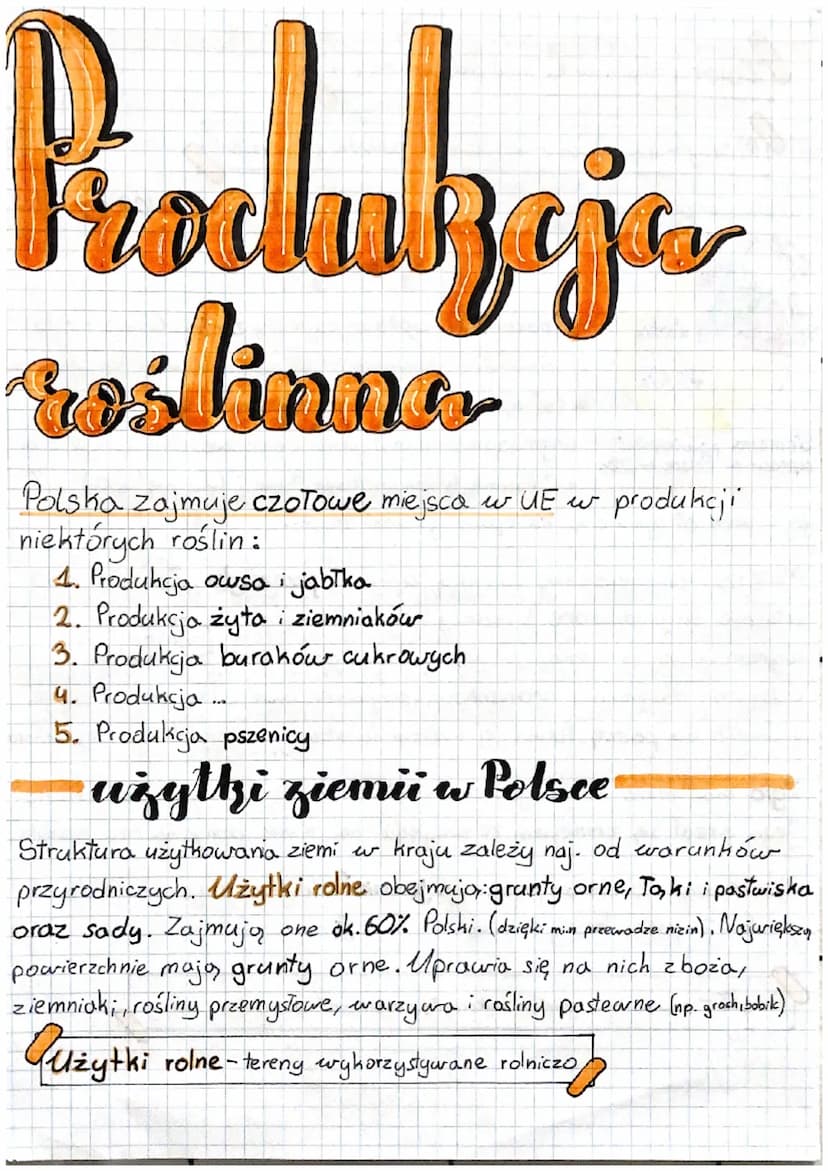 Produkcja
roślinna
Polska zajmuje czołowe miejsca w UE w produkcji
niektórych roślin:
1. Produkcja owsa i jabłka
2. Produkcja żyta i ziemniaków
3. Produkcja buraków cukrowych
4. Produkcja ...
5. Produkcja pszenicy
użytki ziemii w Polsce
Struktura użytkowania ziemi w kraju zależy naj. od warunków
przyrodniczych. Użytki rolne obejmują: grunty orne, łąki i pastwiska
oraz sady. Zajmują one ok. 60% Polski. (dzięki min przewadze nizin). Największą
powierzchnie mają grunty orne. Uprawia się na nich zboża,
ziemniaki, rośliny przemysłowe, warzywa i rośliny pastewne (np. groch, bobik)
Użytki rolne - tereny wykorzystywane rolniczo